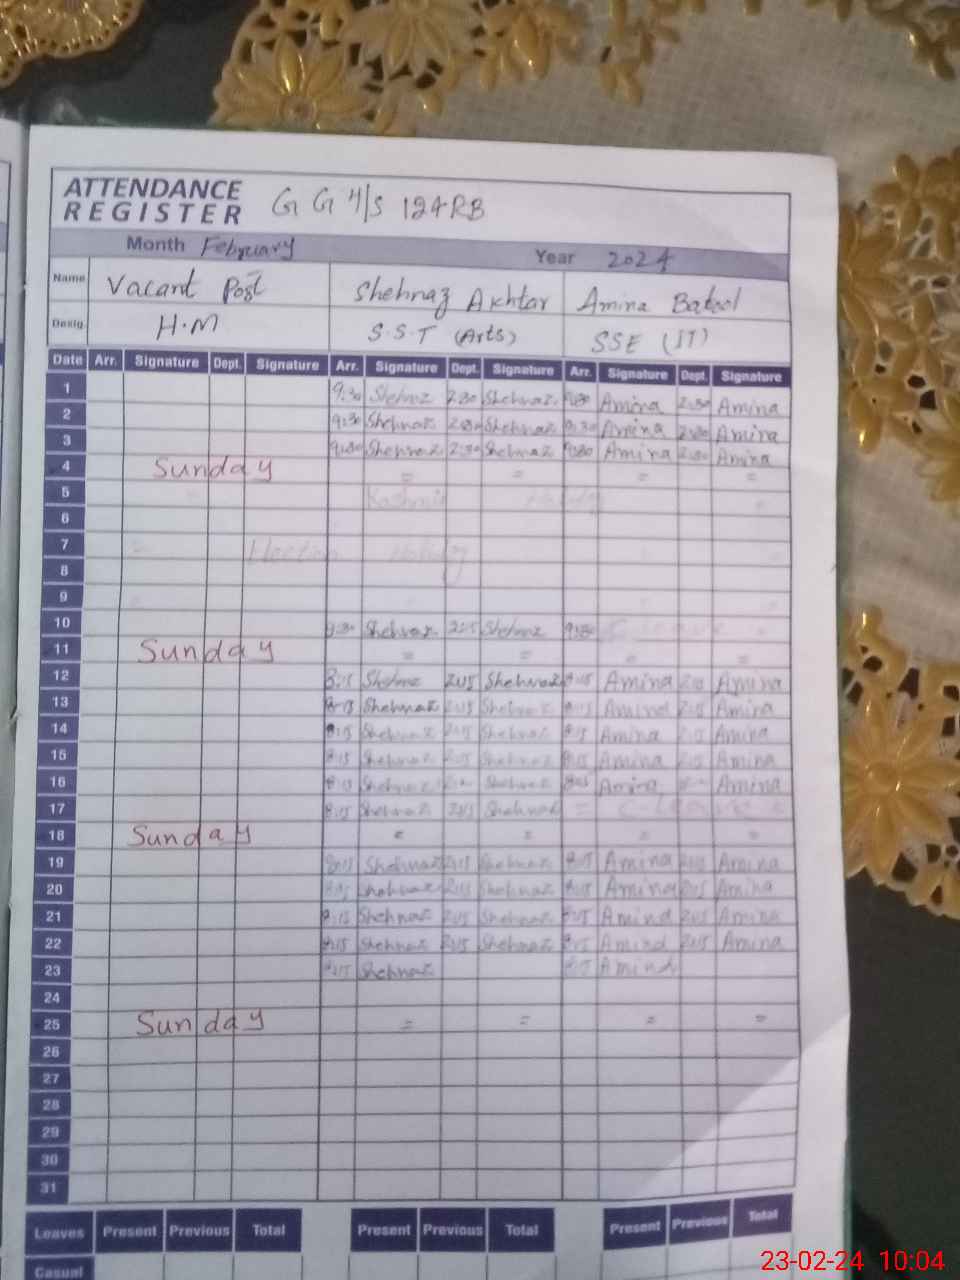 ATTENDANCE REGISTER G G H/S 124RB
Month February Year 2024
Name Vacant Post Shehnaz Akhtar Amina Batool
Desig. H.M S.S.T (Arts) SSE (IT)
Date Arr. Signature Dept. Signature Arr. Signature Dept. Signature Arr. Signature Dept. Signature
1 9:30 Shehnaz 2:30 Shehnaz 9:30 Amina 2:30 Amina
2 9:30 Shehnaz 2:30 Shehnaz 9:30 Amina 2:30 Amina
3 9:30 Shehnaz 2:30 Shehnaz 9:30 Amina 2:30 Amina
4 Sunday = = = =
5 Kashmir Holiday
6
7 Election Holiday
8
9
10 Shehnaz Shehnaz
11 Sunday = = = =
12 8:15 Shehnaz 2:15 Shehnaz 8:15 Amina Amina
13 8:15 Shehnaz 2:15 Shehnaz 8:15 Amina 2:15 Amina
14 8:15 Shehnaz 2:15 Shehnaz 8:15 Amina 2:15 Amina
15 8:15 Shehnaz 2:15 Shehnaz 8:15 Amina 2:15 Amina
16 8:15 Shehnaz Shehnaz Amina Amina
17 8:15 Shehnaz 2:15 Shehnaz = C-Leave =
18 Sunday = = = =
19 8:15 Shehnaz 2:15 Shehnaz 8:15 Amina 2:15 Amina
20 8:15 Shehnaz 2:15 Shehnaz 8:15 Amina 2:15 Amina
21 8:15 Shehnaz 2:15 Shehnaz 8:15 Amina 2:15 Amina
22 8:15 Shehnaz 2:15 Shehnaz 8:15 Amina 2:15 Amina
23 8:15 Shehnaz 8:15 Amina
24
25 Sunday = = = =
26
27
28
29
30
31
Leaves Present Previous Total Present Previous Total Present Previous Total
Casual
23-02-24 10:04